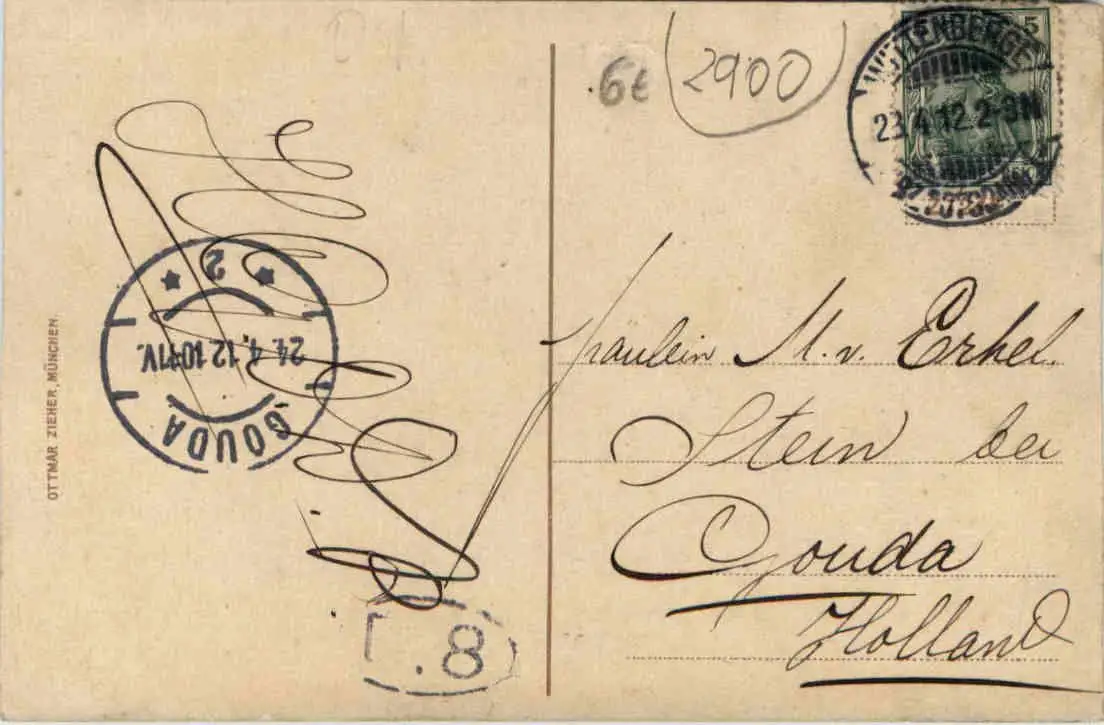 6e
2900
5
WITTENBERGE
23.4.12.2-3N
OTTMAR ZIEHER, MÜNCHEN.
2
24.4.12.10-11V.
GOUDA
Fräulein M. v. Erkel.
Stein bei
Gouda
Holland
.8